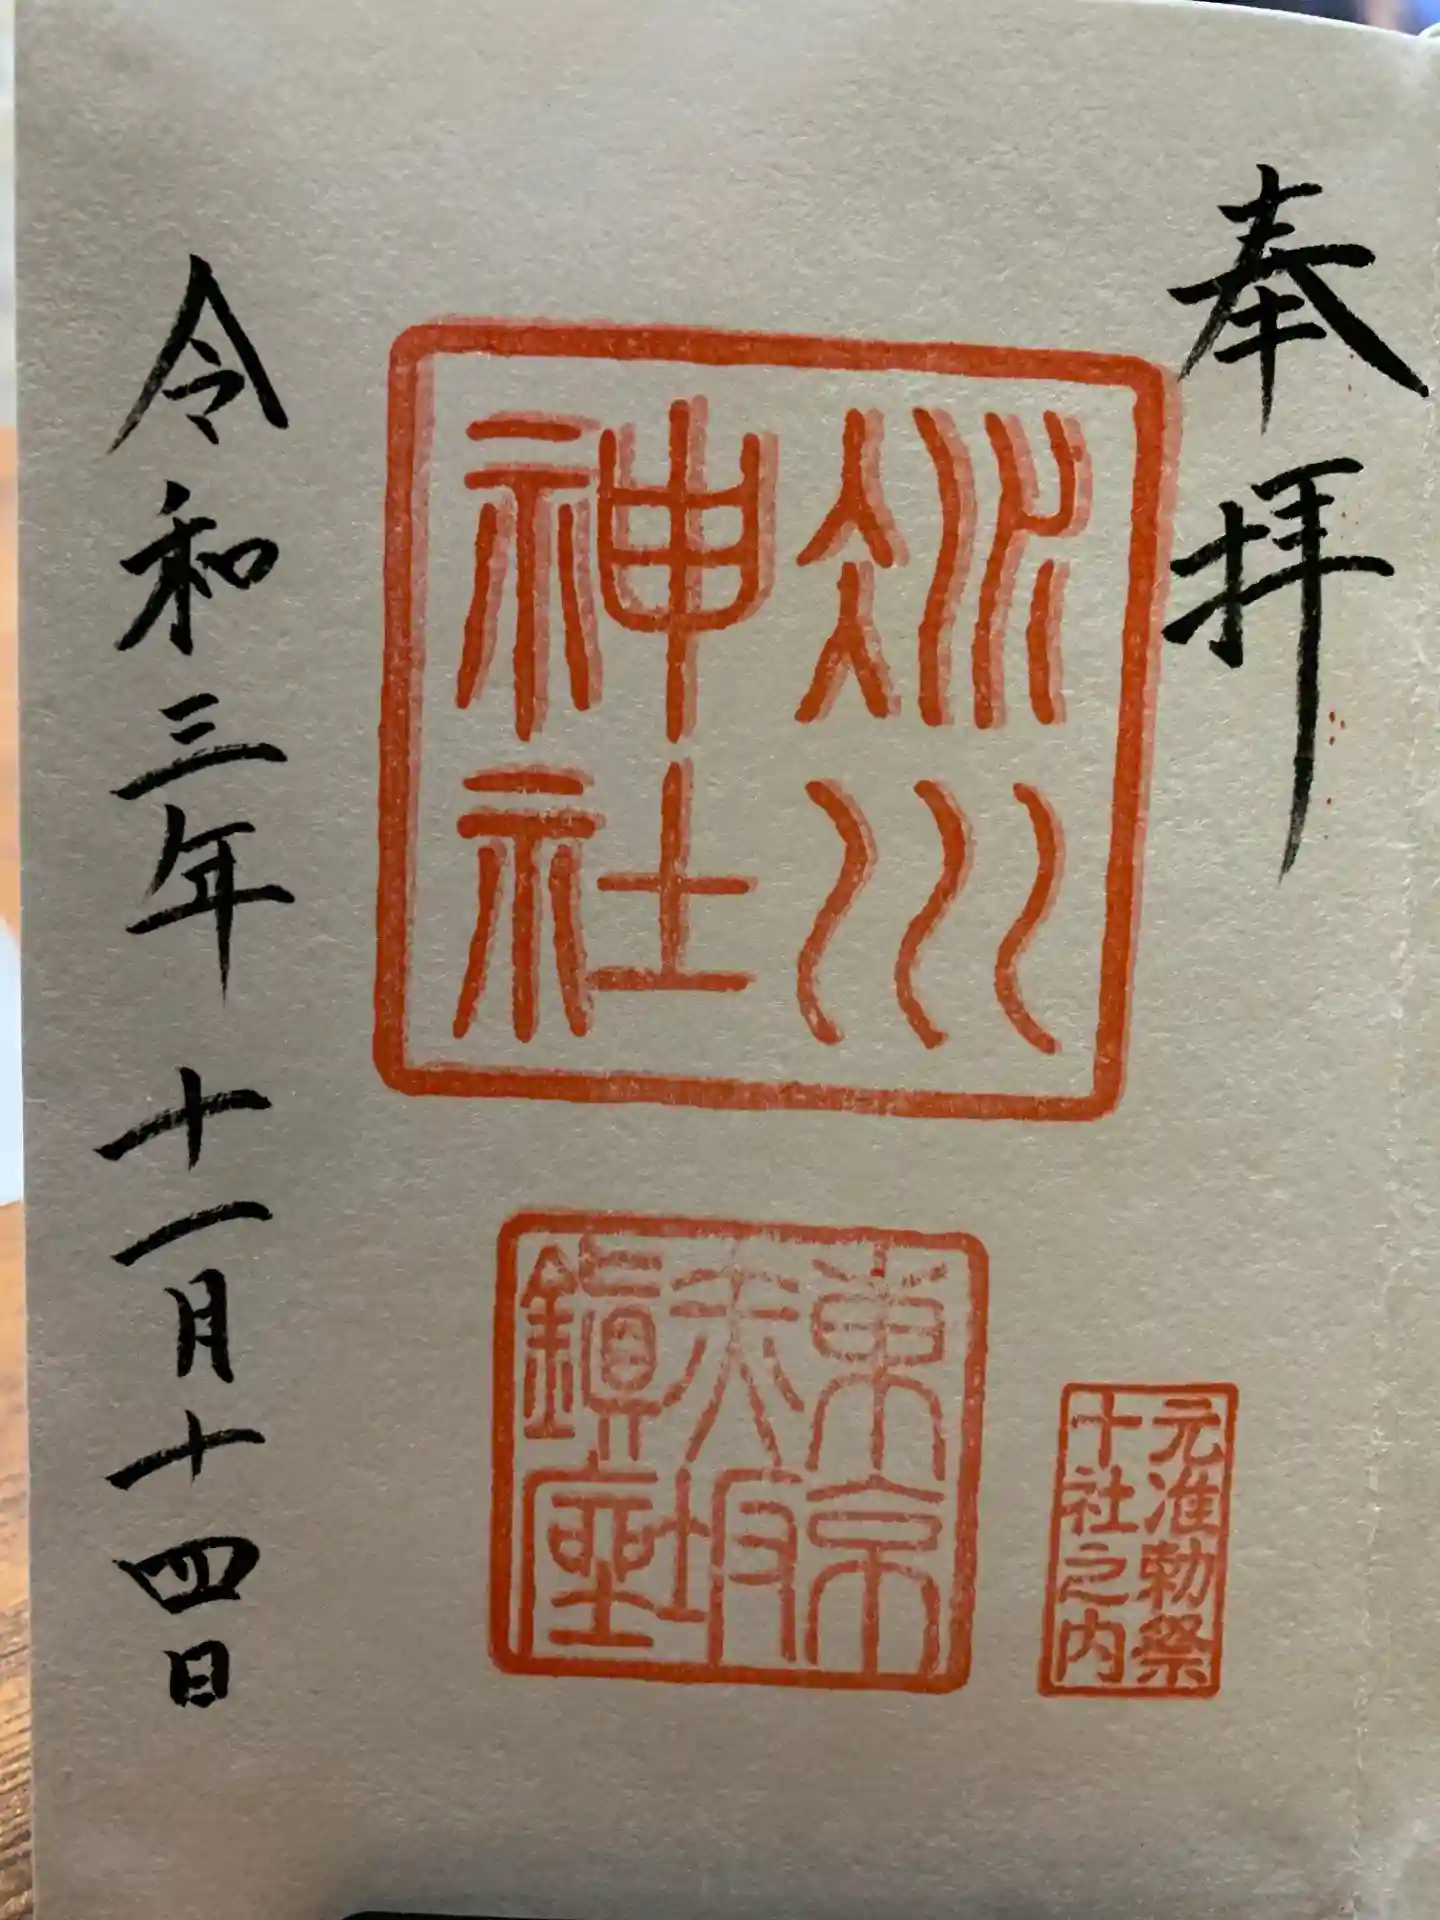 奉拝
氷川
神社
東京
赤坂
鎮座
元准勅祭
十社之内
令和三年十一月十四日